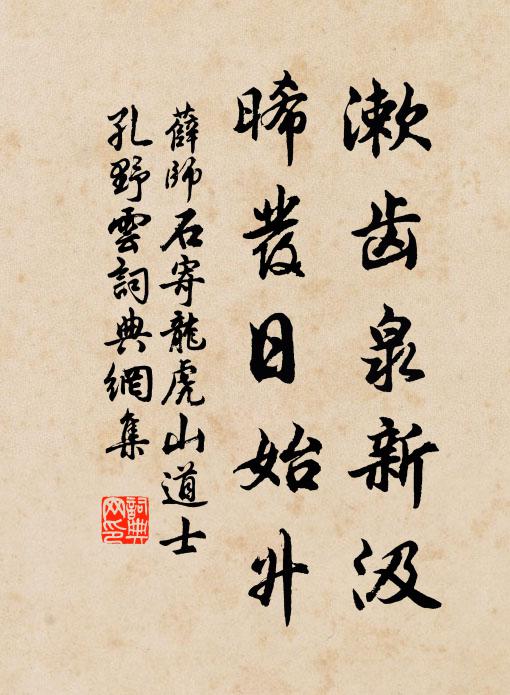 漱齿泉新汲
晞发日始升
薛師石寄龍虎山道士
孔野雲詞典網集
詞典网印